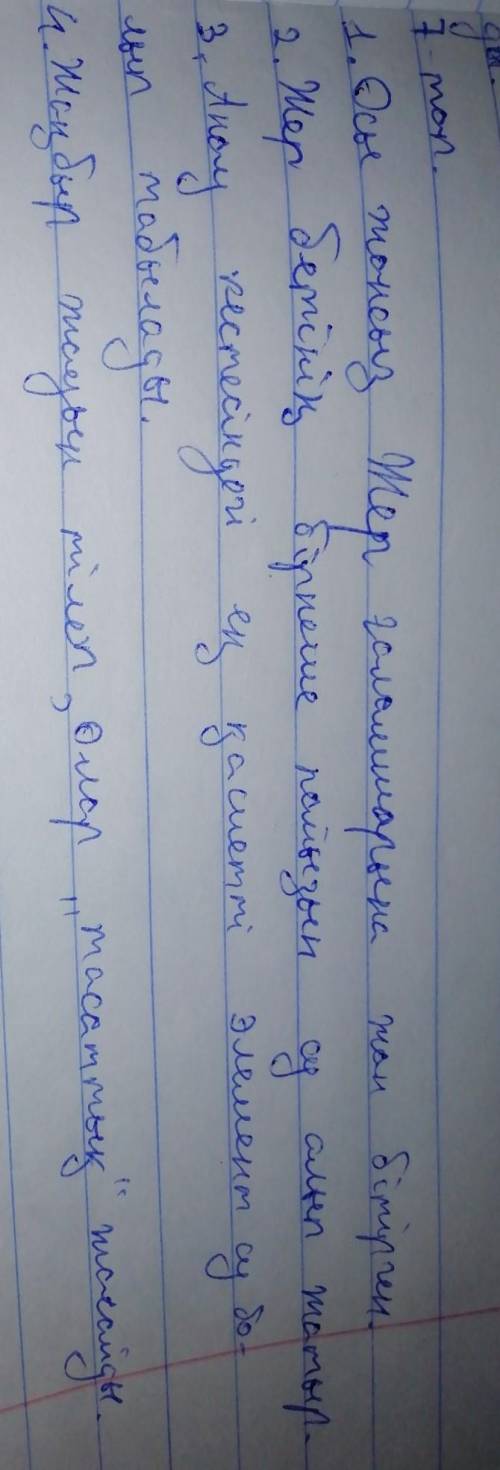 7-топ.
1. Осы жансыз Жер ғаламшарына жан бітірген.
2. Жер бетінің бірнеше пайызын су алып жатыр.
3. Анау кестесіндегі ең қасиетті элемент су бо-
лып табылады.
4. Жаңбыр жауын тілеп, Олар "тасаттық" жасайды.